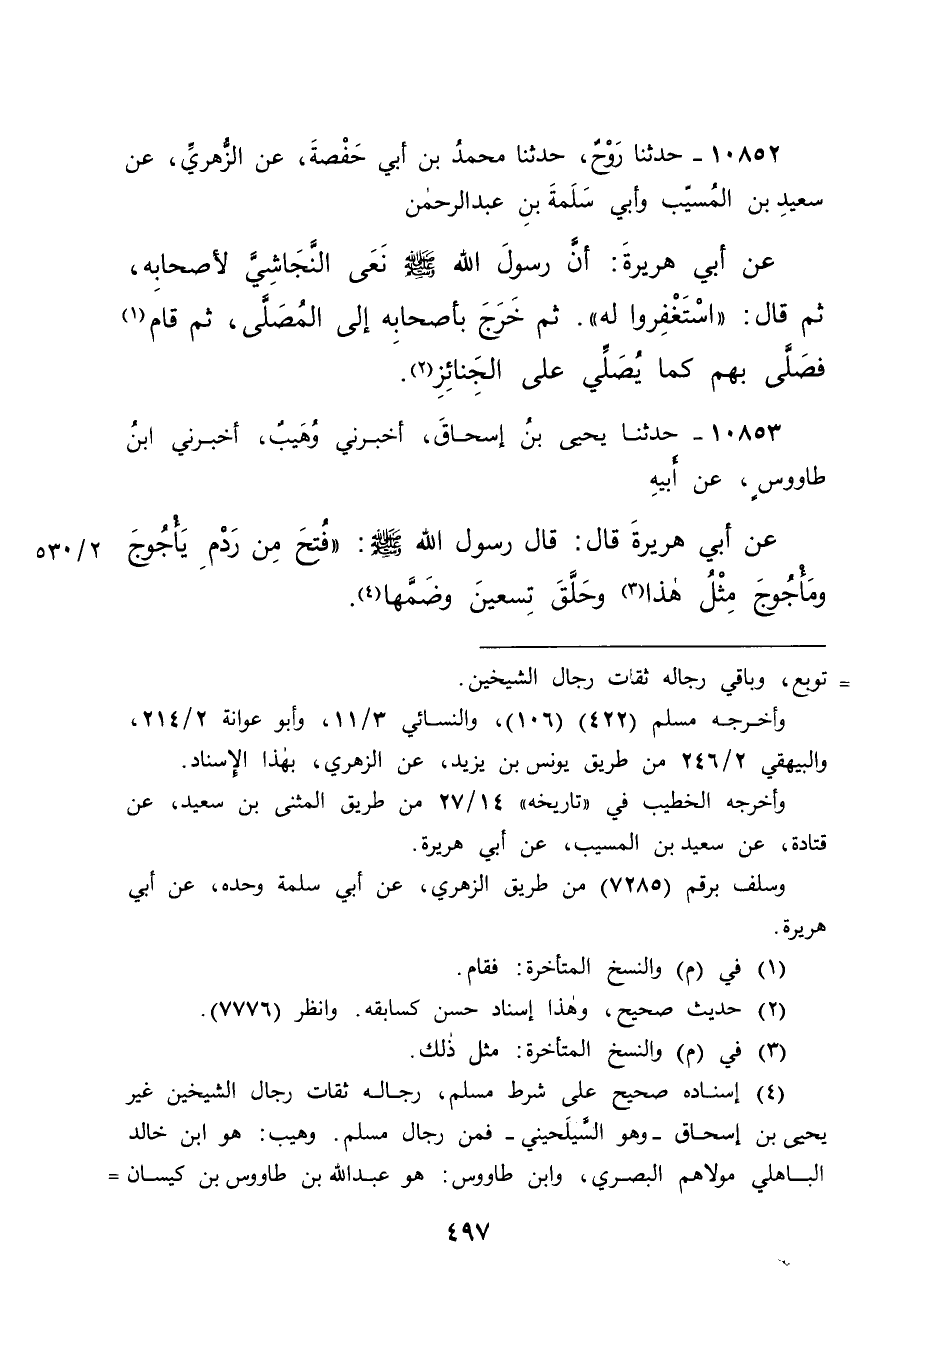 ١٠٨٥٢ - حدثنا رَوْحٌ، حدثنا محمدُ بن أبي حَفْصةَ، عن الزُّهريِّ، عن
سعيدِ بن المُسيّب وأبي سَلَمةَ بنِ عبدالرحمٰن
عن أبي هريرةَ: أنَّ رسولَ الله ﷺ نَعَى النَّجَاشِيَّ لأصحابِه،
ثم قال: «اسْتَغْفِروا له». ثم خَرَجَ بأصحابِه إلى المُصَلَّى، ثم قام(١)
فصَلَّى بهم كما يُصَلِّي على الجَنائِزِ(٢).
١٠٨٥٣ - حدثنا يحيى بنُ إسحاقَ، أخبرني وُهَيبٌ، أخبرني ابنُ
طاووسٍ، عن أَبيهِ
عن أبي هريرةَ قال: قال رسول الله ﷺ: «فُتِحَ مِن رَدْمِ يَأْجُوجَ ٥٣٠/٢
ومَأْجُوجَ مِثْلُ هٰذا(٣) وحَلَّقَ تِسعينَ وضَمَّها(٤).
= توبع، وباقي رجاله ثقات رجال الشيخين.
وأخرجه مسلم (٤٢٢) (١٠٦)، والنسائي ١١/٣، وأبو عوانة ٢١٤/٢،
والبيهقي ٢٤٦/٢ من طريق يونس بن يزيد، عن الزهري، بهٰذا الإسناد.
وأخرجه الخطيب في «تاريخه» ٢٧/١٤ من طريق المثنى بن سعيد، عن
قتادة، عن سعيد بن المسيب، عن أبي هريرة.
وسلف برقم (٧٢٨٥) من طريق الزهري، عن أبي سلمة وحده، عن أبي
هريرة.
(١) في (م) والنسخ المتأخرة: فقام.
(٢) حديث صحيح، وهٰذا إسناد حسن كسابقه. وانظر (٧٧٧٦).
(٣) في (م) والنسخ المتأخرة: مثل ذٰلك.
(٤) إسناده صحيح على شرط مسلم، رجاله ثقات رجال الشيخين غير
يحيى بن إسحاق -وهو السَّيلَحيني- فمن رجال مسلم. وهيب: هو ابن خالد
الباهلي مولاهم البصري، وابن طاووس: هو عبدالله بن طاووس بن كيسان =
٤٩٧